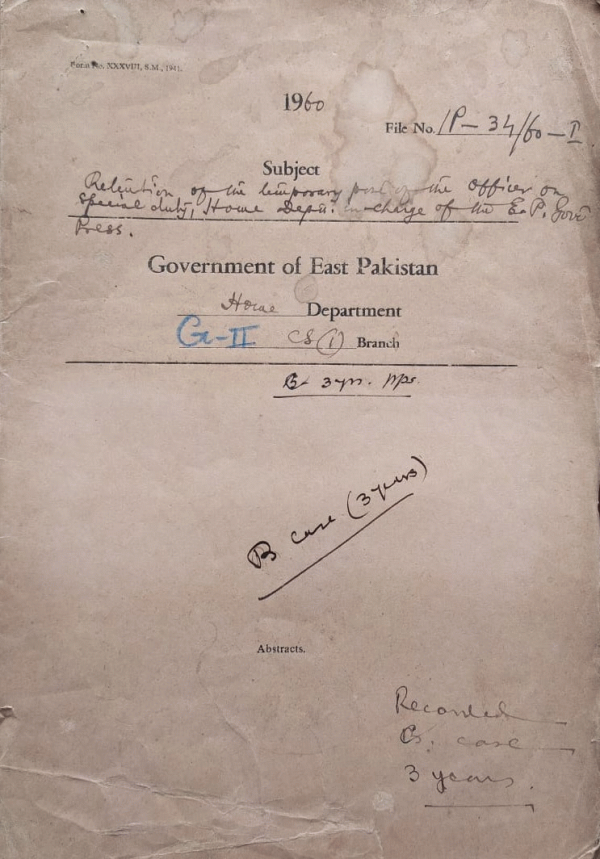 Form No. XXXVIII, S.M., 1941.
1960
File No. 1P-34/60-I
Subject
Retention of the temporary post of the Officer on
Special duty, Home Deptt. in-charge of the E.P. Govt
Press.
Government of East Pakistan
Home Department
G-II CS(1) Branch
B 3 yrs.
B case (3 years)
Abstracts.
Recorded
B. case
3 years.